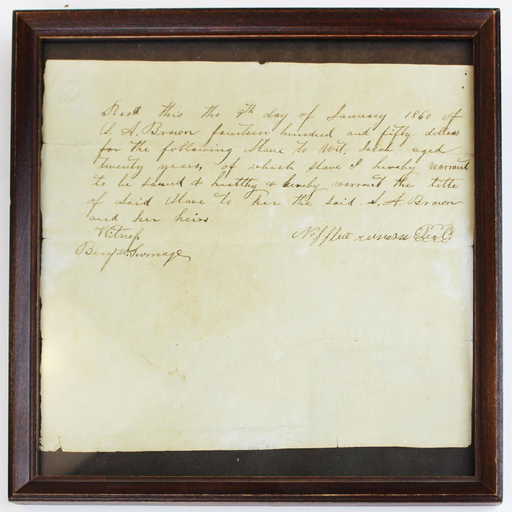 Recd this the 9th day of January 1860 of
S. A. Brown fourteen hundred and fifty dollars
for the following slave to wit, aged
twenty years, of which slave I hereby warrant
to be sound & healthy & hereby warrant the title
of said slave to her the said S. A. Brown
and her heirs
Witness
Benj